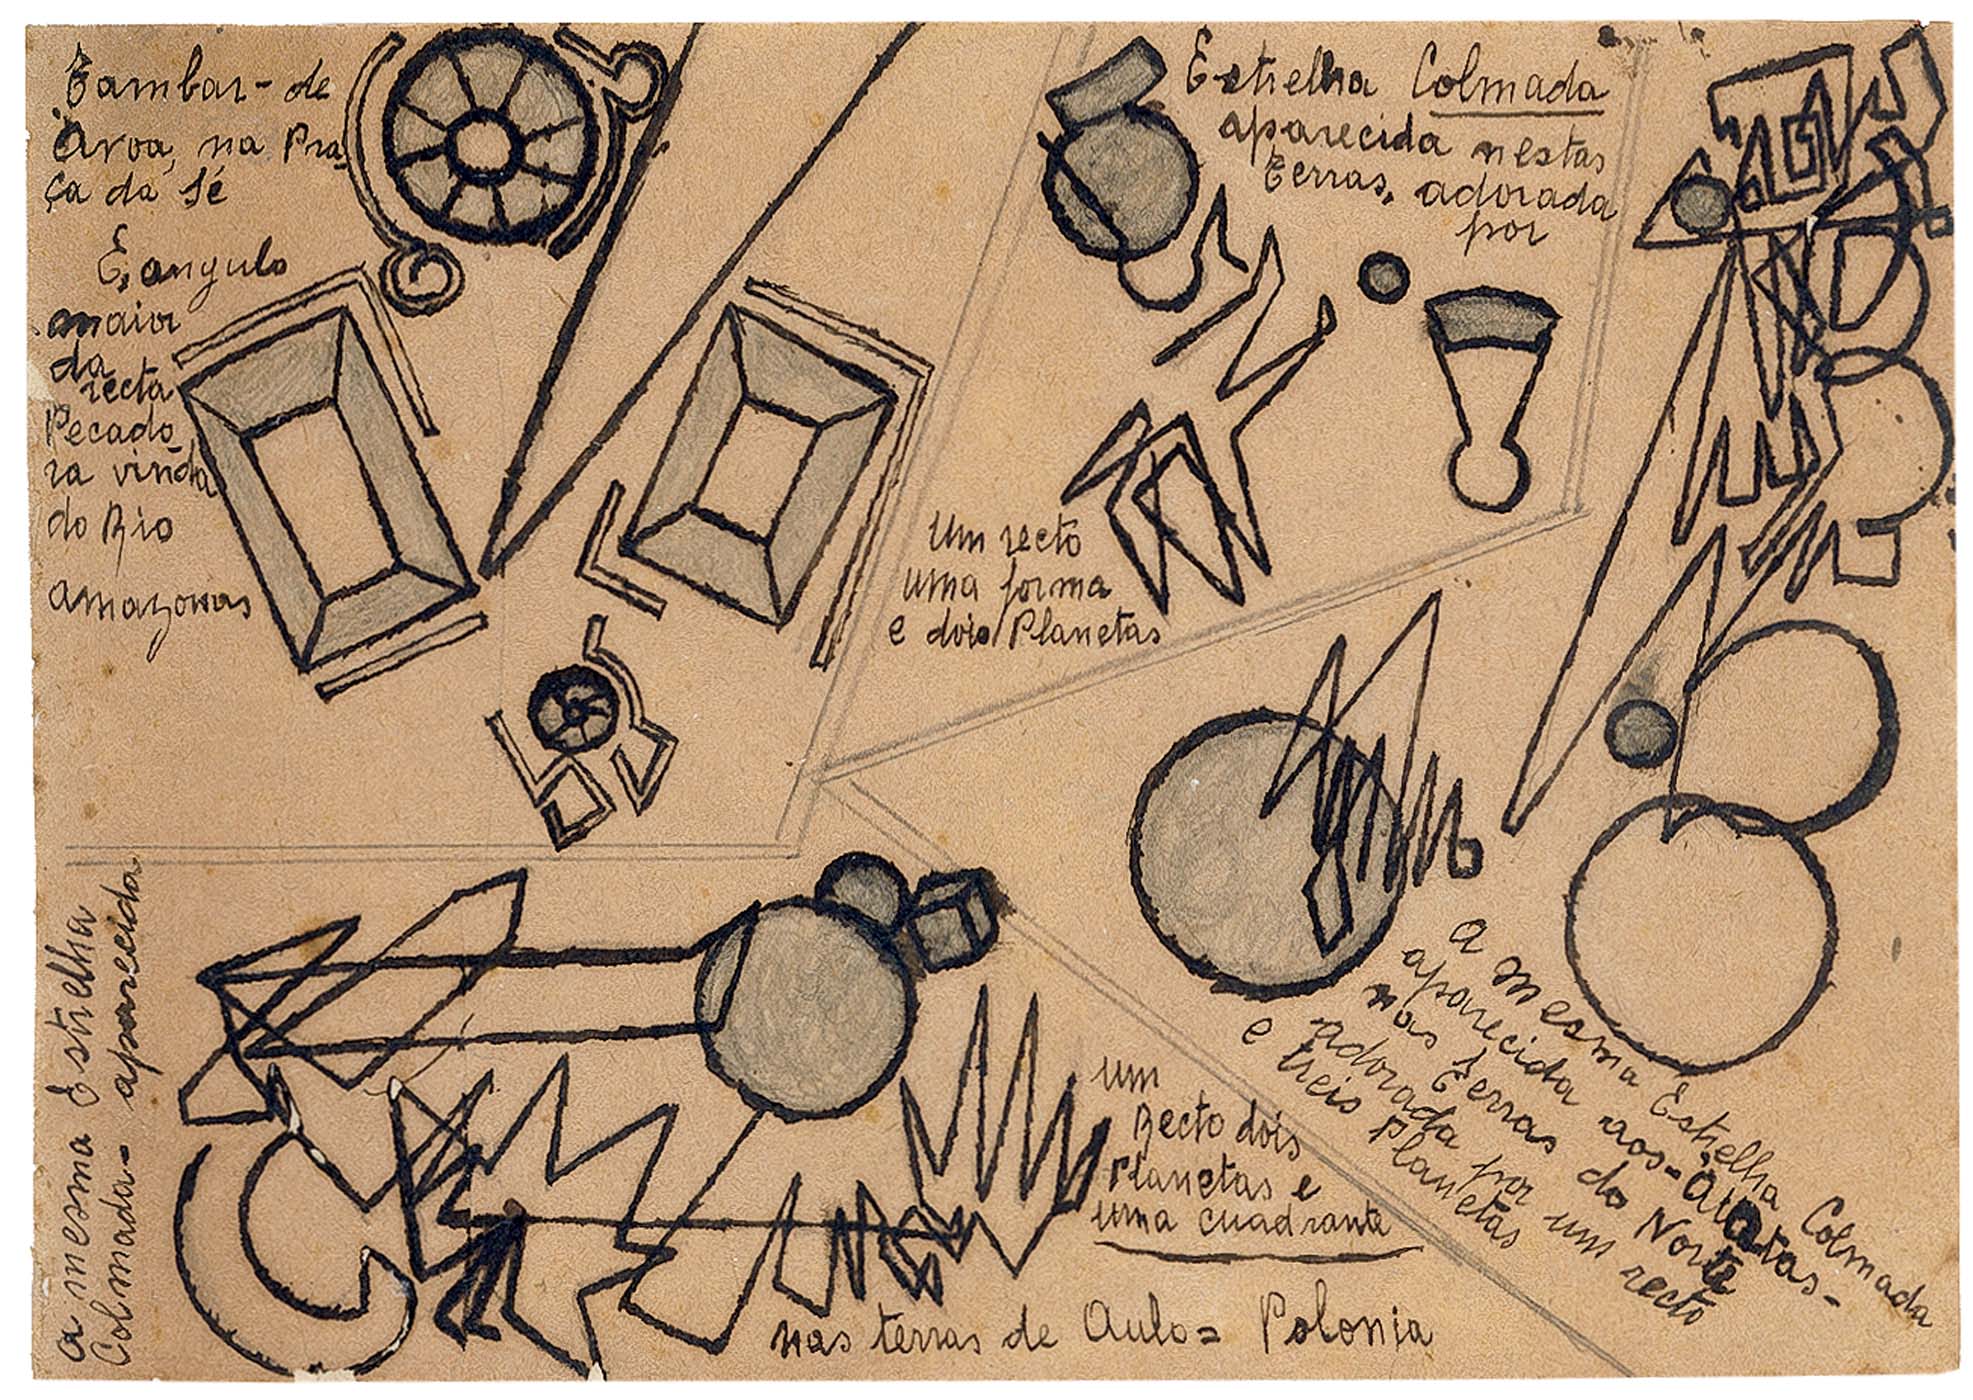 Eambar-de
Aroa, na Pra
ça da Sé
E, angulo
maior
da
recta
Pecado
ra vinda
do Rio
amazonas
Um recto
uma forma
e dois Planetas
Estrelha Colmada
aparecida nestas
Eerras, adorada
por
a mesma Estrelha
Colmada= aparecida
um
Recto dois
Planetas e
uma cuadrante
nas terras de Aulo= Polonia
a mesma Estrelha Colmada
aparecida
nas Eerras do Norte
adorada por um recto
e treis Planetas